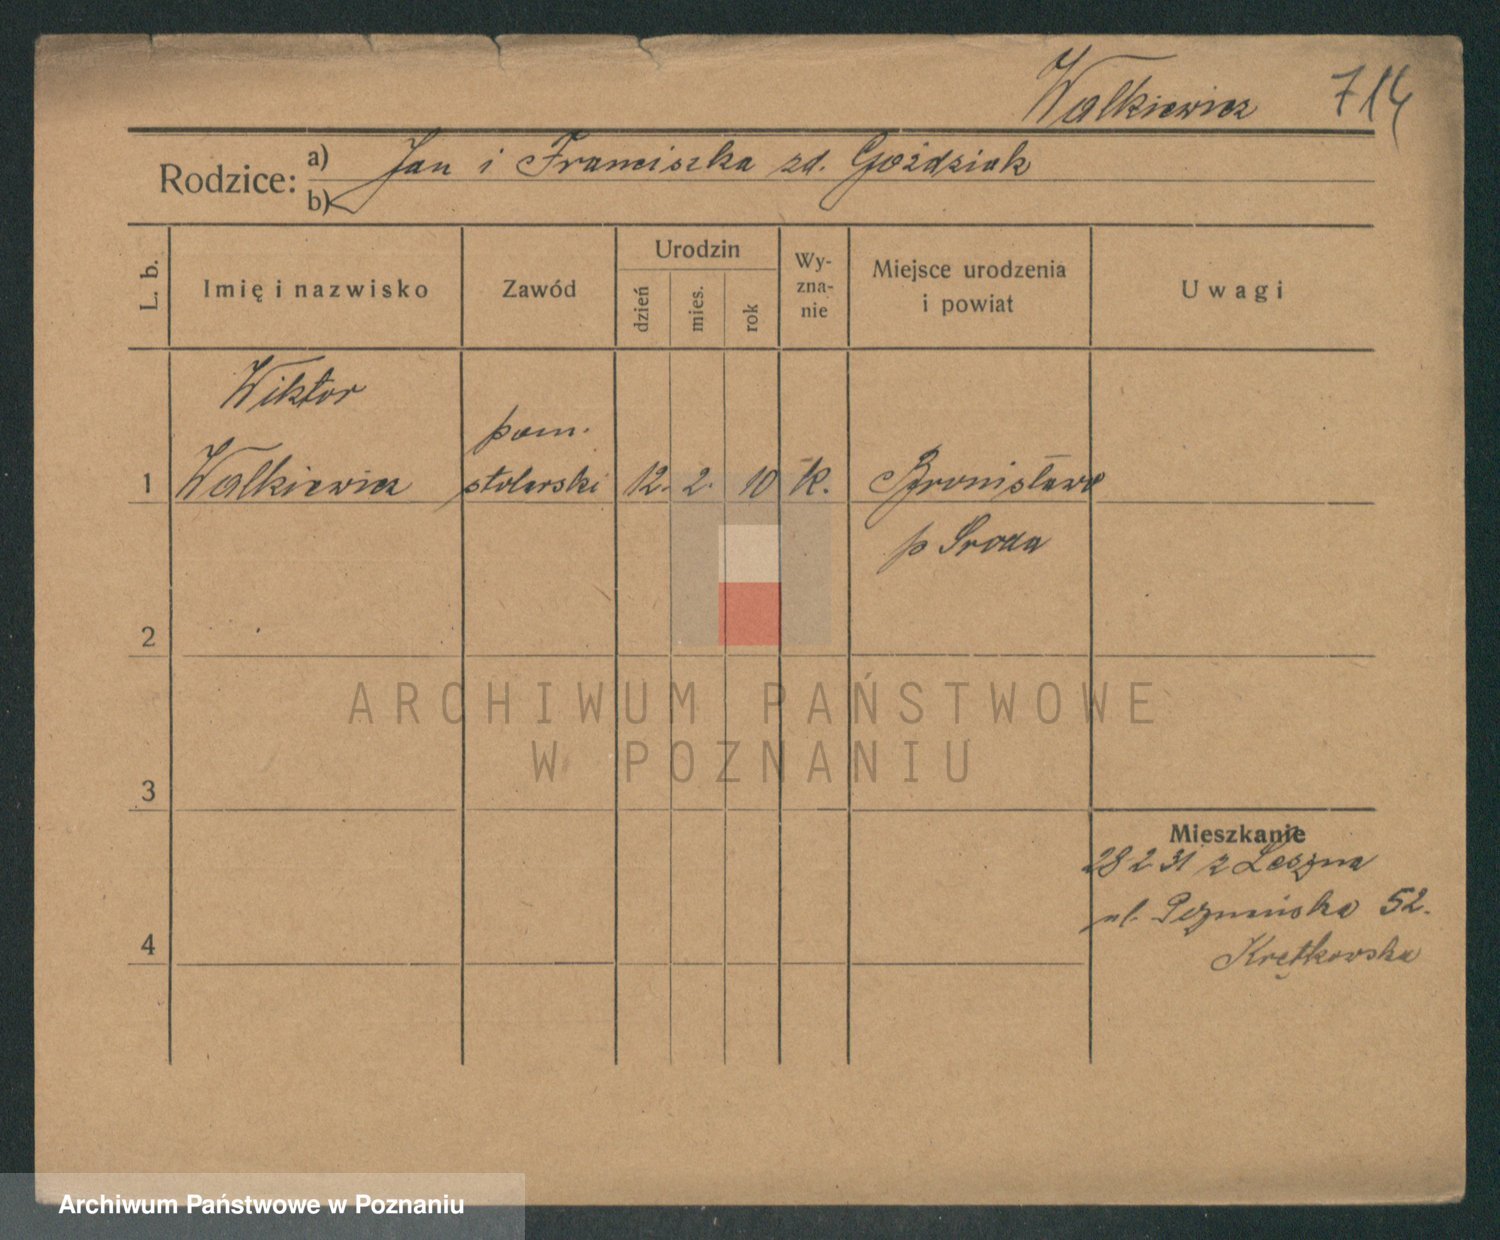 Walkiewicz 714
Rodzice: a) Jan i Franciszka zd. Goździak
b)
L. b.
Imię i nazwisko
Zawód
Urodzin
dzień
mies.
rok
Wy-
zna-
nie
Miejsce urodzenia
i powiat
Uwagi
Wiktor
pom.
1 Walkiewicz stolarski 12. 2. 10 k. Bronisława
p Środa
2
3
4
ARCHIWUM PAŃSTWOWE
W POZNANIU
Mieszkanie
28 2 31 z Leszna
ul. Poznańska 52.
Krętkowska
Archiwum Państwowe w Poznaniu